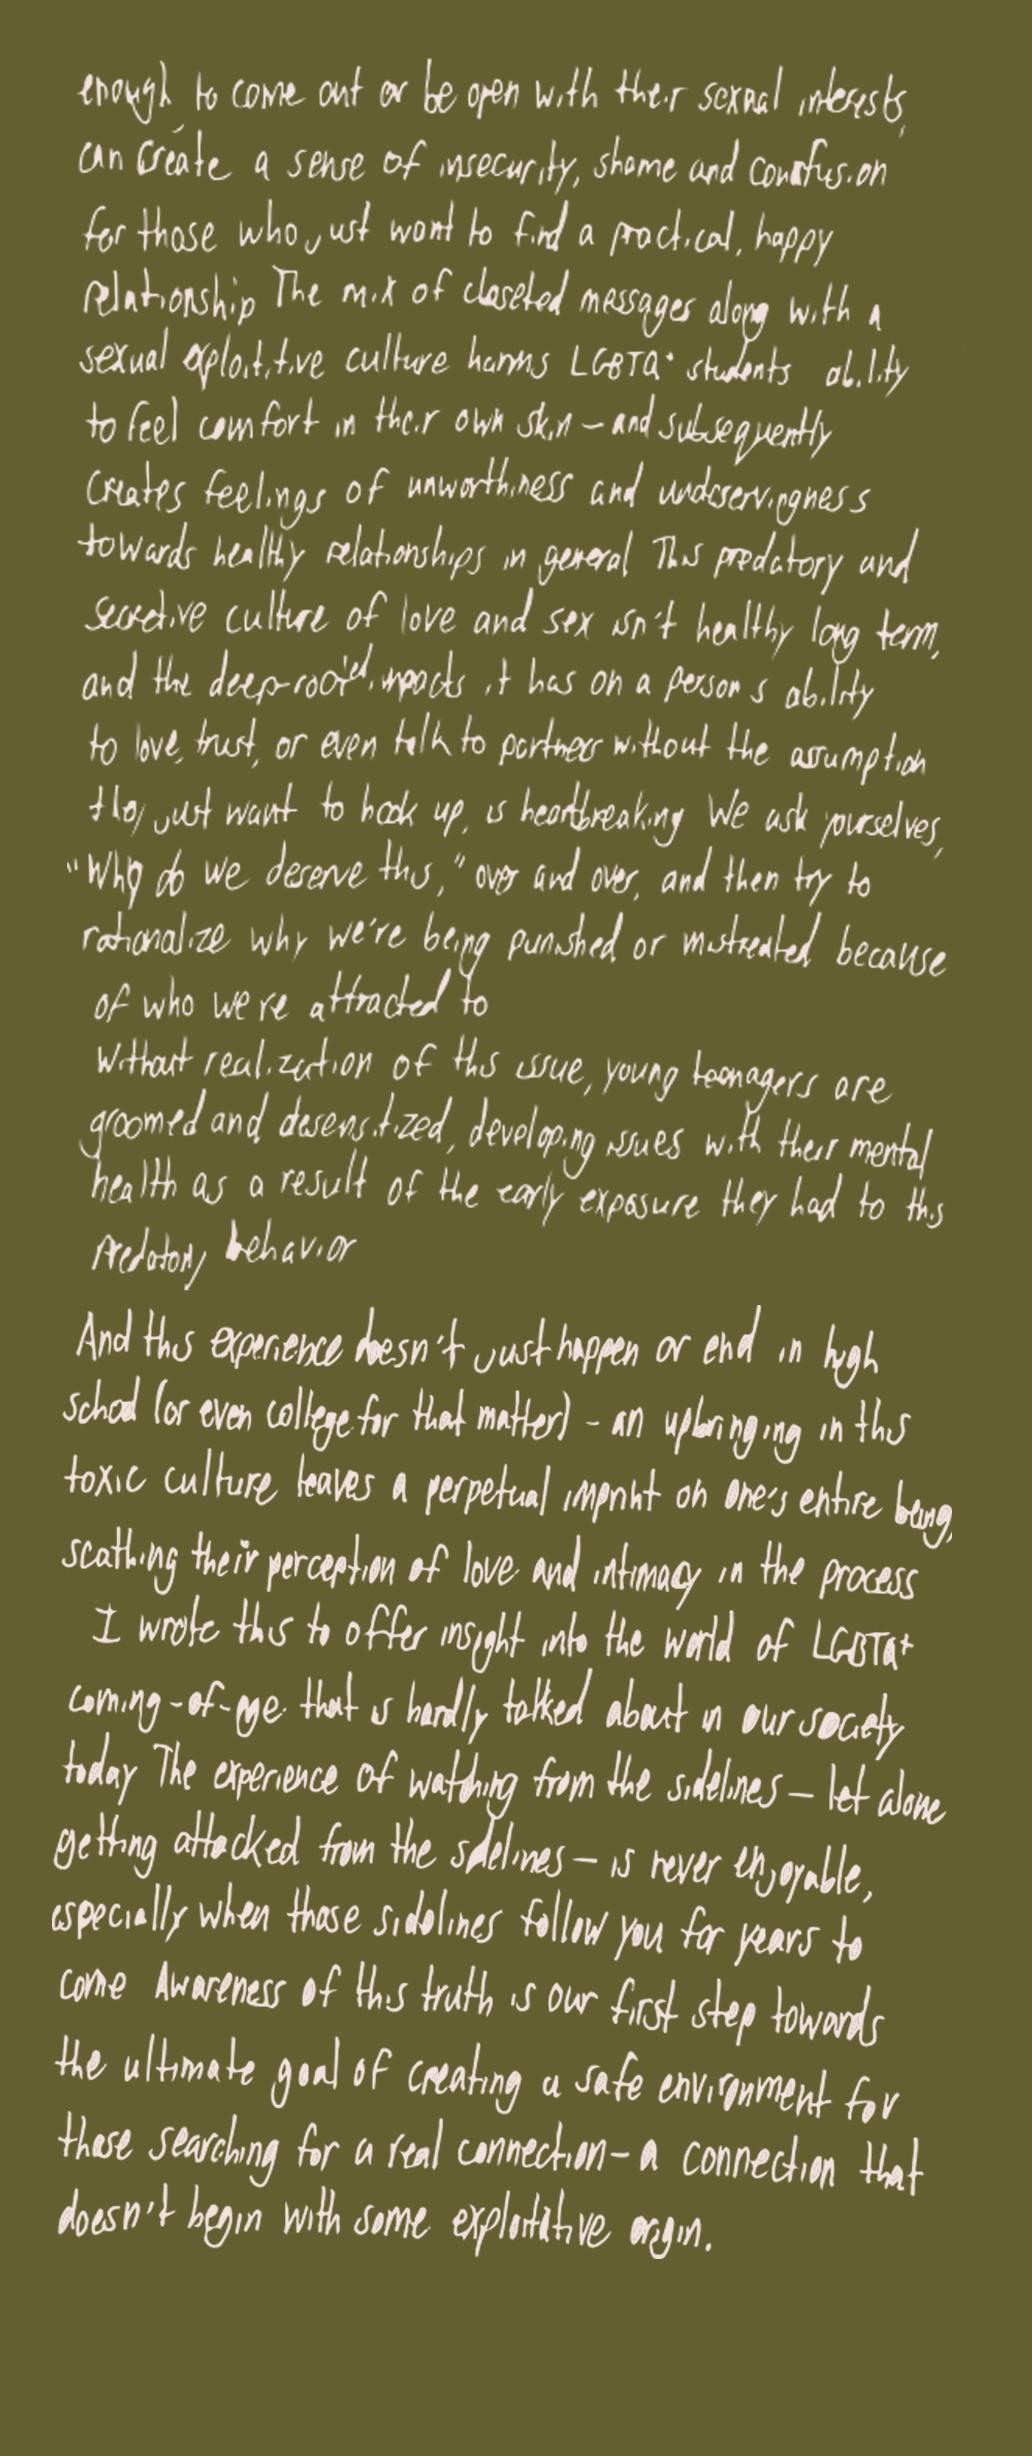 enough, to come out or be open with their sexual interests,
can create a sense of insecurity, shame and confusion
for those who just want to find a practical, happy
relationship The mix of closeted messages along with a
sexual exploititive culture harms LGBTQ+ students ability
to feel comfort in their own skin – and subsequently
creates feelings of unworthiness and undeservingness
towards healthy relationships in general This predatory and
secretive culture of love and sex isn't healthy long term,
and the deep-rooted impacts it has on a person s ability
to love, trust, or even talk to partners without the assumption
they just want to hook up, is heartbreaking We ask yourselves,
"Why do we deserve this," over and over, and then try to
rationalize why we're being punished or mistreated because
of who we re attracted to
Without realization of this issue, young teenagers are
groomed and desensitized, developing issues with their mental
health as a result of the early exposure they had to this
predatory behavior
And this experience doesn't just happen or end in high
school (or even college for that matter) – an upbringing in this
toxic culture leaves a perpetual imprint on one's entire being,
scathing their perception of love and intimacy in the process
I wrote this to offer insight into the world of LGBTQ+
coming-of-age that is hardly talked about in our society
today The experience of watching from the sidelines – let alone
getting attacked from the sidelines – is never enjoyable,
especially when those sidelines follow you for years to
come Awareness of this truth is our first step towards
the ultimate goal of creating a safe environment for
those searching for a real connection – a connection that
doesn't begin with some exploitative origin.